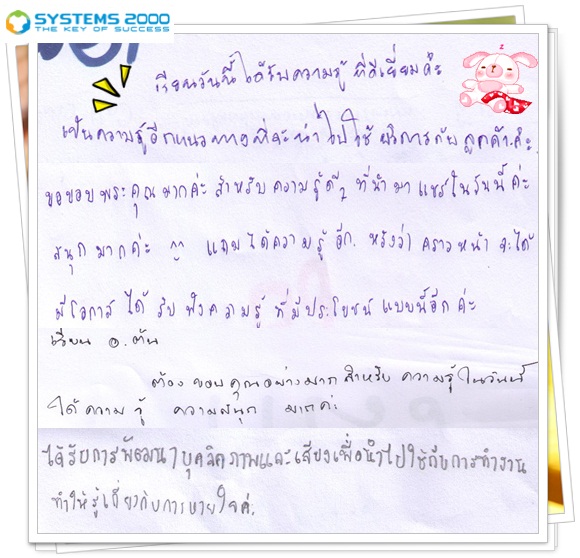 SYSTEMS 2000
THE KEY OF SUCCESS
z
เรียนวันนี้ ได้รับความรู้ ที่ดีเยี่ยมค่ะ
เป็นความรู้อีกแนวทางที่จะนำไปใช้ บริการกับ ลูกค้าค่ะ
ขอขอบพระคุณ มากค่ะ สำหรับ ความรู้ดีๆ ที่นำมา แชร์ในวันนี้ ค่ะ
สนุก มากค่ะ แถม ได้ความรู้ อีก. หวังว่า คราวหน้า จะได้
มีโอกาส ได้ รับ ฟังความรู้ ที่มีประโยชน์ แบบนี้อีก ค่ะ
เรียน อ. ต้น
ต้อง ขอบคุณอย่างมาก สำหรับ ความรู้ ในวันนี้
ได้ ความ รู้ ความสนุก มากค่ะ
ได้รับการพัฒนาบุคลิคภาพและเสียงเพื่อนำไปใช้กับการทำงาน
ทำให้รู้เกี่ยวกับการหายใจค่ะ